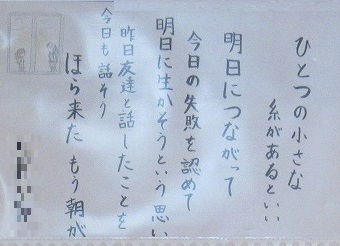 ひとつの小さな
糸があるといい
明日につながって
今日の失敗を認めて
明日に生かそうという思い
昨日友達と話したことを
今日も話そう
ほら来た もう朝が